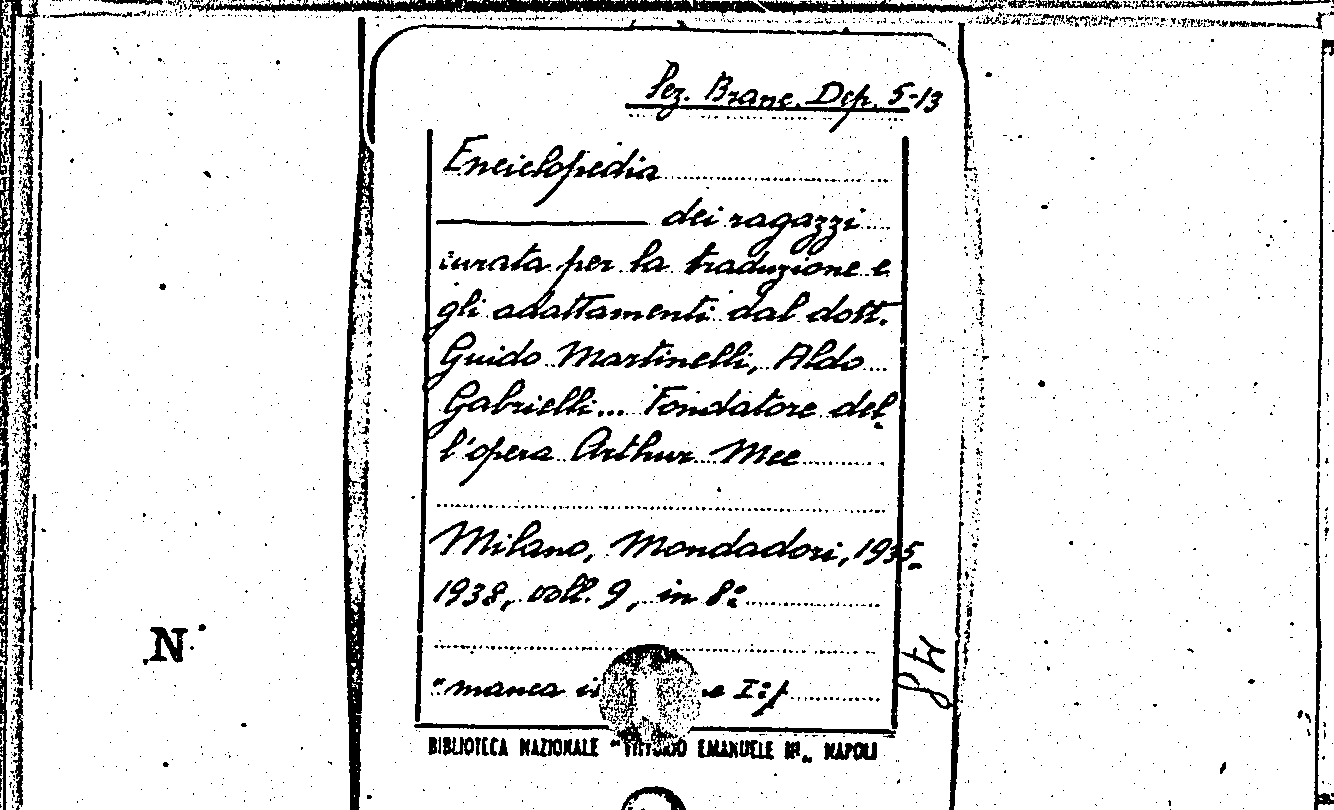 Sez. Branc. Dep. 5-13
Enciclopedia
dei ragazzi
curata per la traduzione e
gli adattamenti dal dott.
Guido Martinelli, Aldo
Gabrielli... Fondatore del-
l'opera Arthur Mee
Milano, Mondadori, 1935-
1938, voll. 9, in 8°
"manca I°
BIBLIOTECA NAZIONALE "VITTORIO EMANUELE III", NAPOLI
N